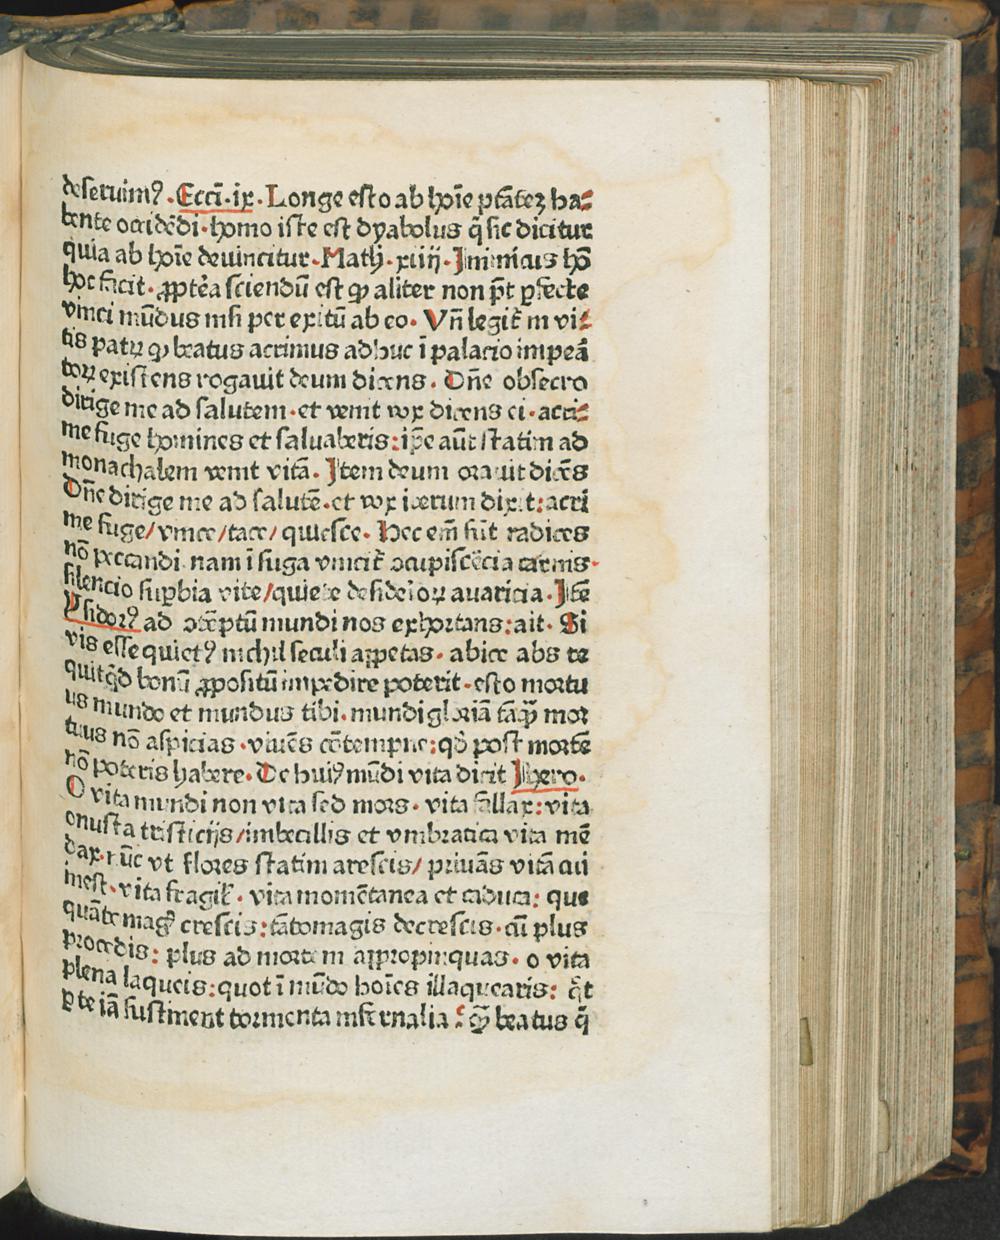 deseruimꝰ. Ecci. ix. Longe esto ab hoīe ptātez ha⸗
bente occidēdi. homo iste est dyabolus q̄ sic dicitur
quia ab hoīe deuincitur. Math. xiiij. Inimicus hō
hoc fācit. ꝓptēa sciendū est qꝫ aliter non p̄t ꝑfecte
vinci mūdus nisi per exitū ab eo. Vñ legit̄ in vi⸗
tis patꝝ qꝫ beatus acrimus adhuc ī palacio impeā
toꝝ existens rogauit deum dicens. Dñe obsecro
dirige me ad salutem. et venit vox dicens ei. acri⸗
me fuge homines et saluaberis: ip̄e aūt statim ad
monachalem venit vitā. Item deum orauit dicēs
Dñe dirige me ad salutē. et vox iterum dixit: acri
me fuge/ vince/ tace/ quiesce. Hec em̄ sūt radices
nō peccandi. nam ī fuga vincit̄ ꝯcupiscēcia carnis.
silencio suꝑbia vite/ quiete desideꝛioꝝ auaricia. Itē
Ysidorꝰ ad ꝯtēptū mundi nos exhortans: ait. Si
vis esse quietꝰ nichil seculi appetas. abice abs te
quitq̇d bonū ꝓpositū impedire poterit. esto mortu
us mundo et mundus tibi. mundi gloriā tāqꝫ mor
tuus nō aspicias. viuēs cōtempne: qd̄ post mortē
nō poteris habere. De huiꝰ mūdi vita dicit Jhero.
O vita mundi non vita sed mors. vita fallax: vita
onusta tristicijs/ imbecillis et vmbratica vita mē
dax. nūc vt flores statim arescis/ priuās vitā cui
inest. vita fragil̄. vita momētanea et caduca: que
quāto magꝭ crescis: tātomagis decrescis. cū plus
procedis: plus ad mortem appropinquas. o vita
plena laqueis: quot ī mūdo hoīes illaquearis: q̄t
ꝑ te iā sustinent tormenta infernalia: Qꝫ beatus q̄